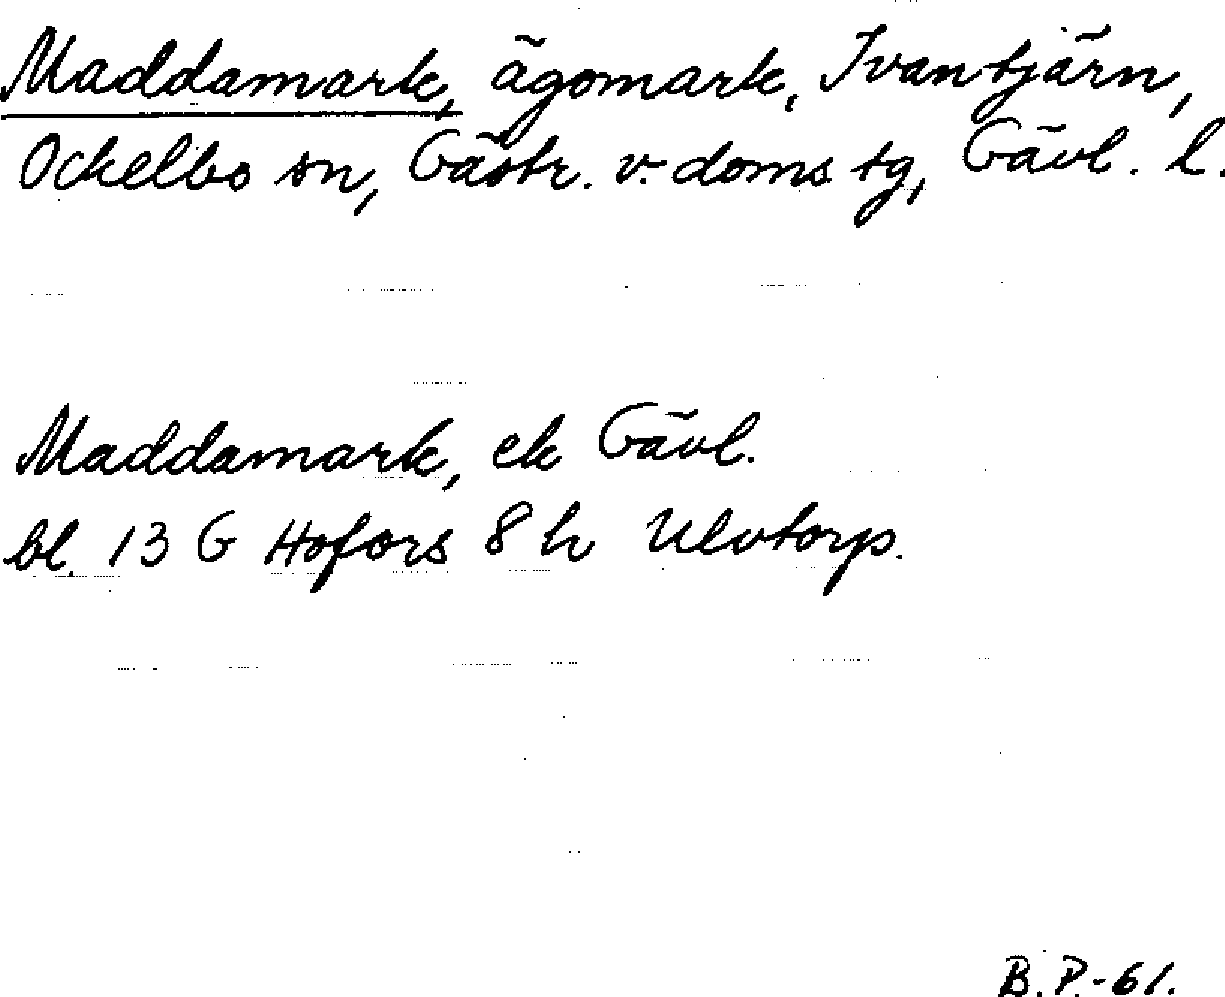 Maddamark, ägomark, Ivantjärn,
Ockelbo sn, Gästr. v. doms tg, Gävl. l.
Maddamark, ek Gävl.
bl. 13 G Hofors 8 h Ulvtorp.
B.P.-61.